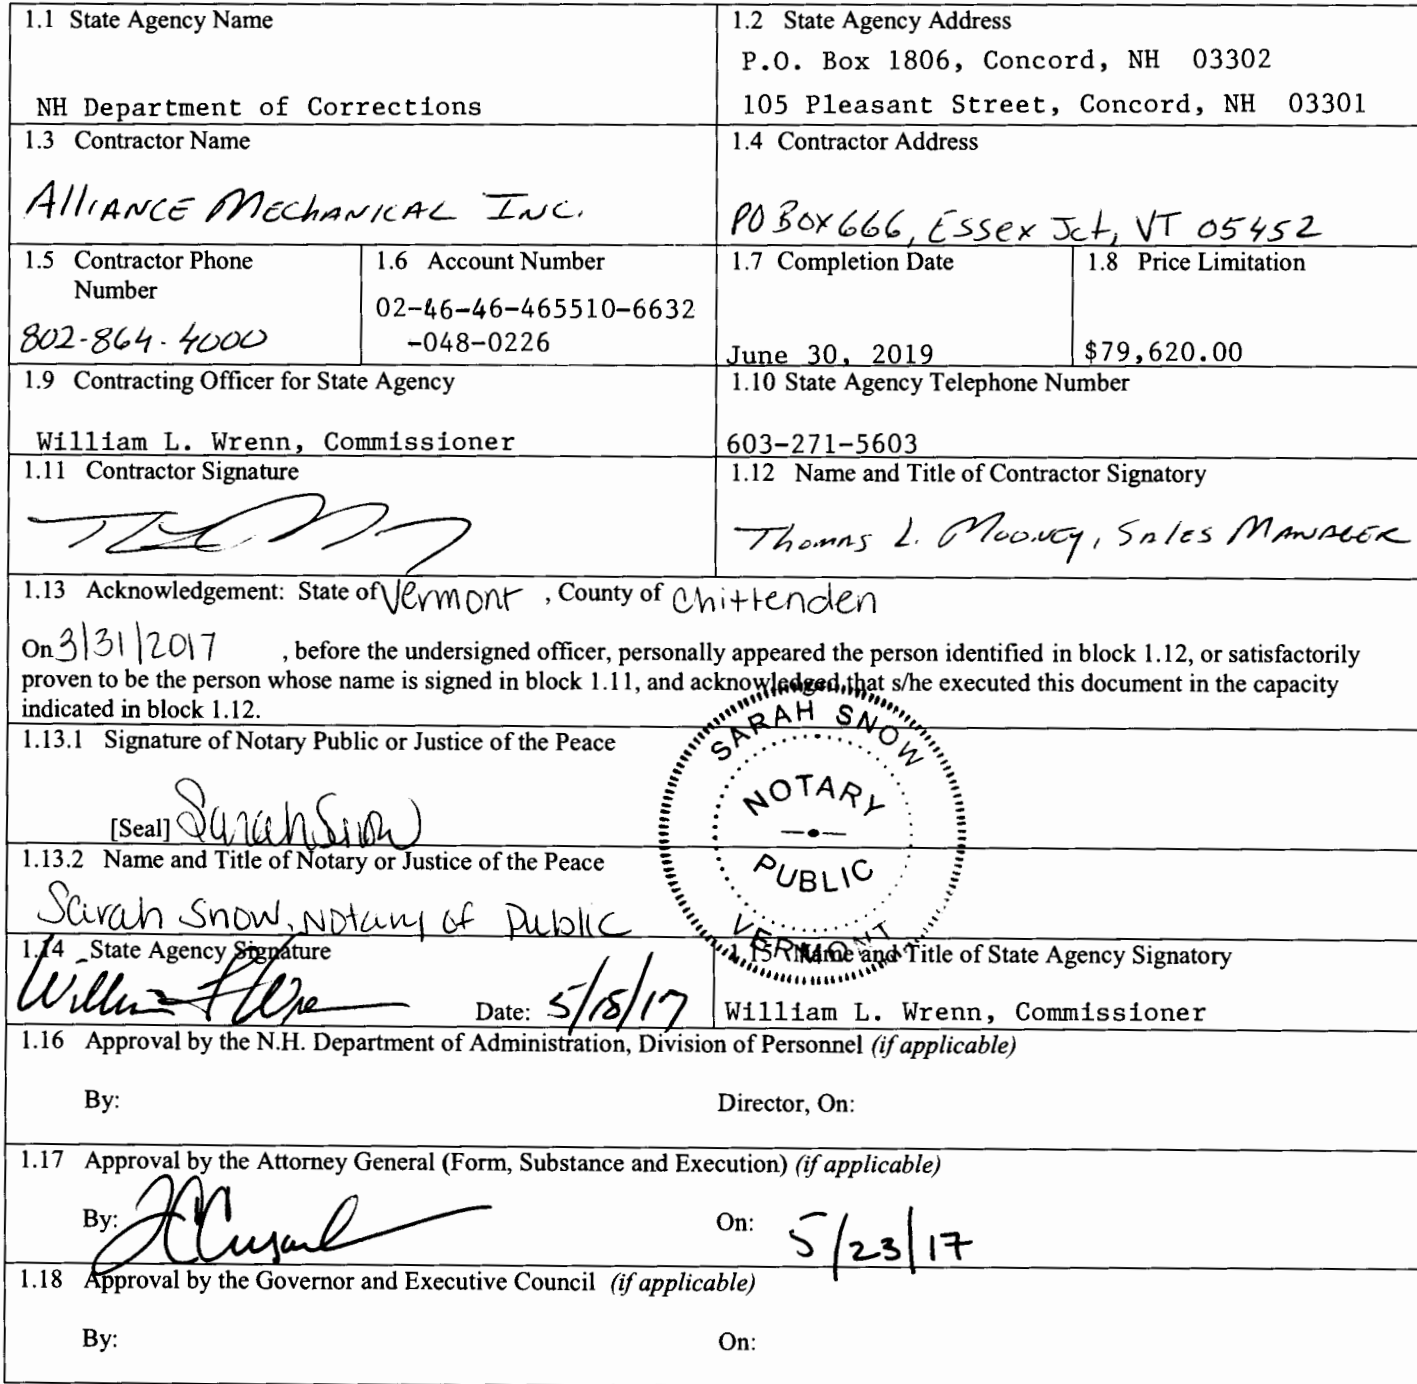 1.1 State Agency Name
NH Department of Corrections
1.2 State Agency Address
P.O. Box 1806, Concord, NH 03302
105 Pleasant Street, Concord, NH 03301
1.3 Contractor Name
Alliance Mechanical Inc.
1.4 Contractor Address
PO Box 666, Essex Jct, VT 05452
1.5 Contractor Phone
Number
802-864-4000
1.6 Account Number
02-46-46-465510-6632
-048-0226
1.7 Completion Date
June 30, 2019
1.8 Price Limitation
$79,620.00
1.9 Contracting Officer for State Agency
William L. Wrenn, Commissioner
1.10 State Agency Telephone Number
603-271-5603
1.11 Contractor Signature
1.12 Name and Title of Contractor Signatory
Thomas L. Mooney, Sales Manager
1.13 Acknowledgement: State of Vermont , County of Chittenden
On 3/31/2017 , before the undersigned officer, personally appeared the person identified in block 1.12, or satisfactorily
proven to be the person whose name is signed in block 1.11, and acknowledged that s/he executed this document in the capacity
indicated in block 1.12.
1.13.1 Signature of Notary Public or Justice of the Peace
[Seal] Sarah Snow
SARAH SNOW
NOTARY
PUBLIC
VERMONT
1.13.2 Name and Title of Notary or Justice of the Peace
Sarah Snow, Notary of Public
1.14 State Agency Signature
Date: 5/15/17
1.15 Name and Title of State Agency Signatory
William L. Wrenn, Commissioner
1.16 Approval by the N.H. Department of Administration, Division of Personnel (if applicable)
By:
Director, On:
1.17 Approval by the Attorney General (Form, Substance and Execution) (if applicable)
By:
On: 5/23/17
1.18 Approval by the Governor and Executive Council (if applicable)
By:
On: